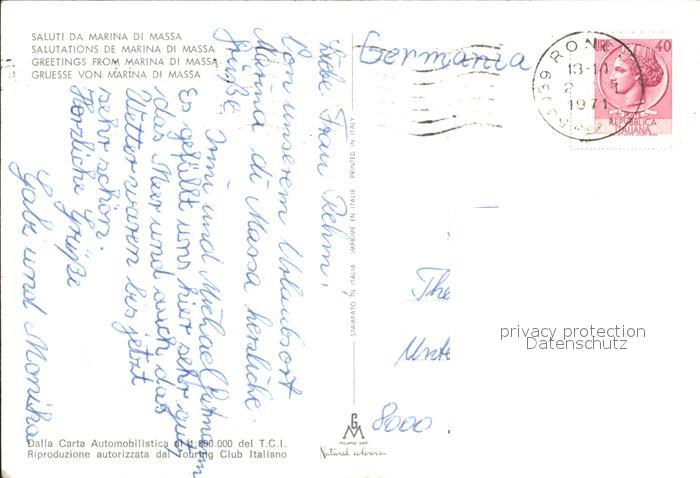 SALUTI DA MARINA DI MASSA
SALUTATIONS DE MARINA DI MASSA
GREETINGS FROM MARINA DI MASSA
GRUESSE VON MARINA DI MASSA
Liebe Frau Rehm,
Von unserem Urlaubsort
Marina di Massa herzliche
Grüße
Irmi und Michael
Es gefällt uns hier sehr gut,
das Meer und auch das
Wetter waren bis jetzt
sehr schön.
Herzliche Grüße
Gabi und Monika
Dalla Carta Automobilistica al 1:800.000 del T.C.I.
Riproduzione autorizzata dal Touring Club Italiano
STAMPATO IN ITALIA IMPRIMÉ EN ITALIE PRINTED IN ITALY
MILANO
Natural colours
Germania
13-14
1971
LIRE 40
REPUBBLICA
ITALIANA
The
Unte
8000
privacy protection
Datenschutz